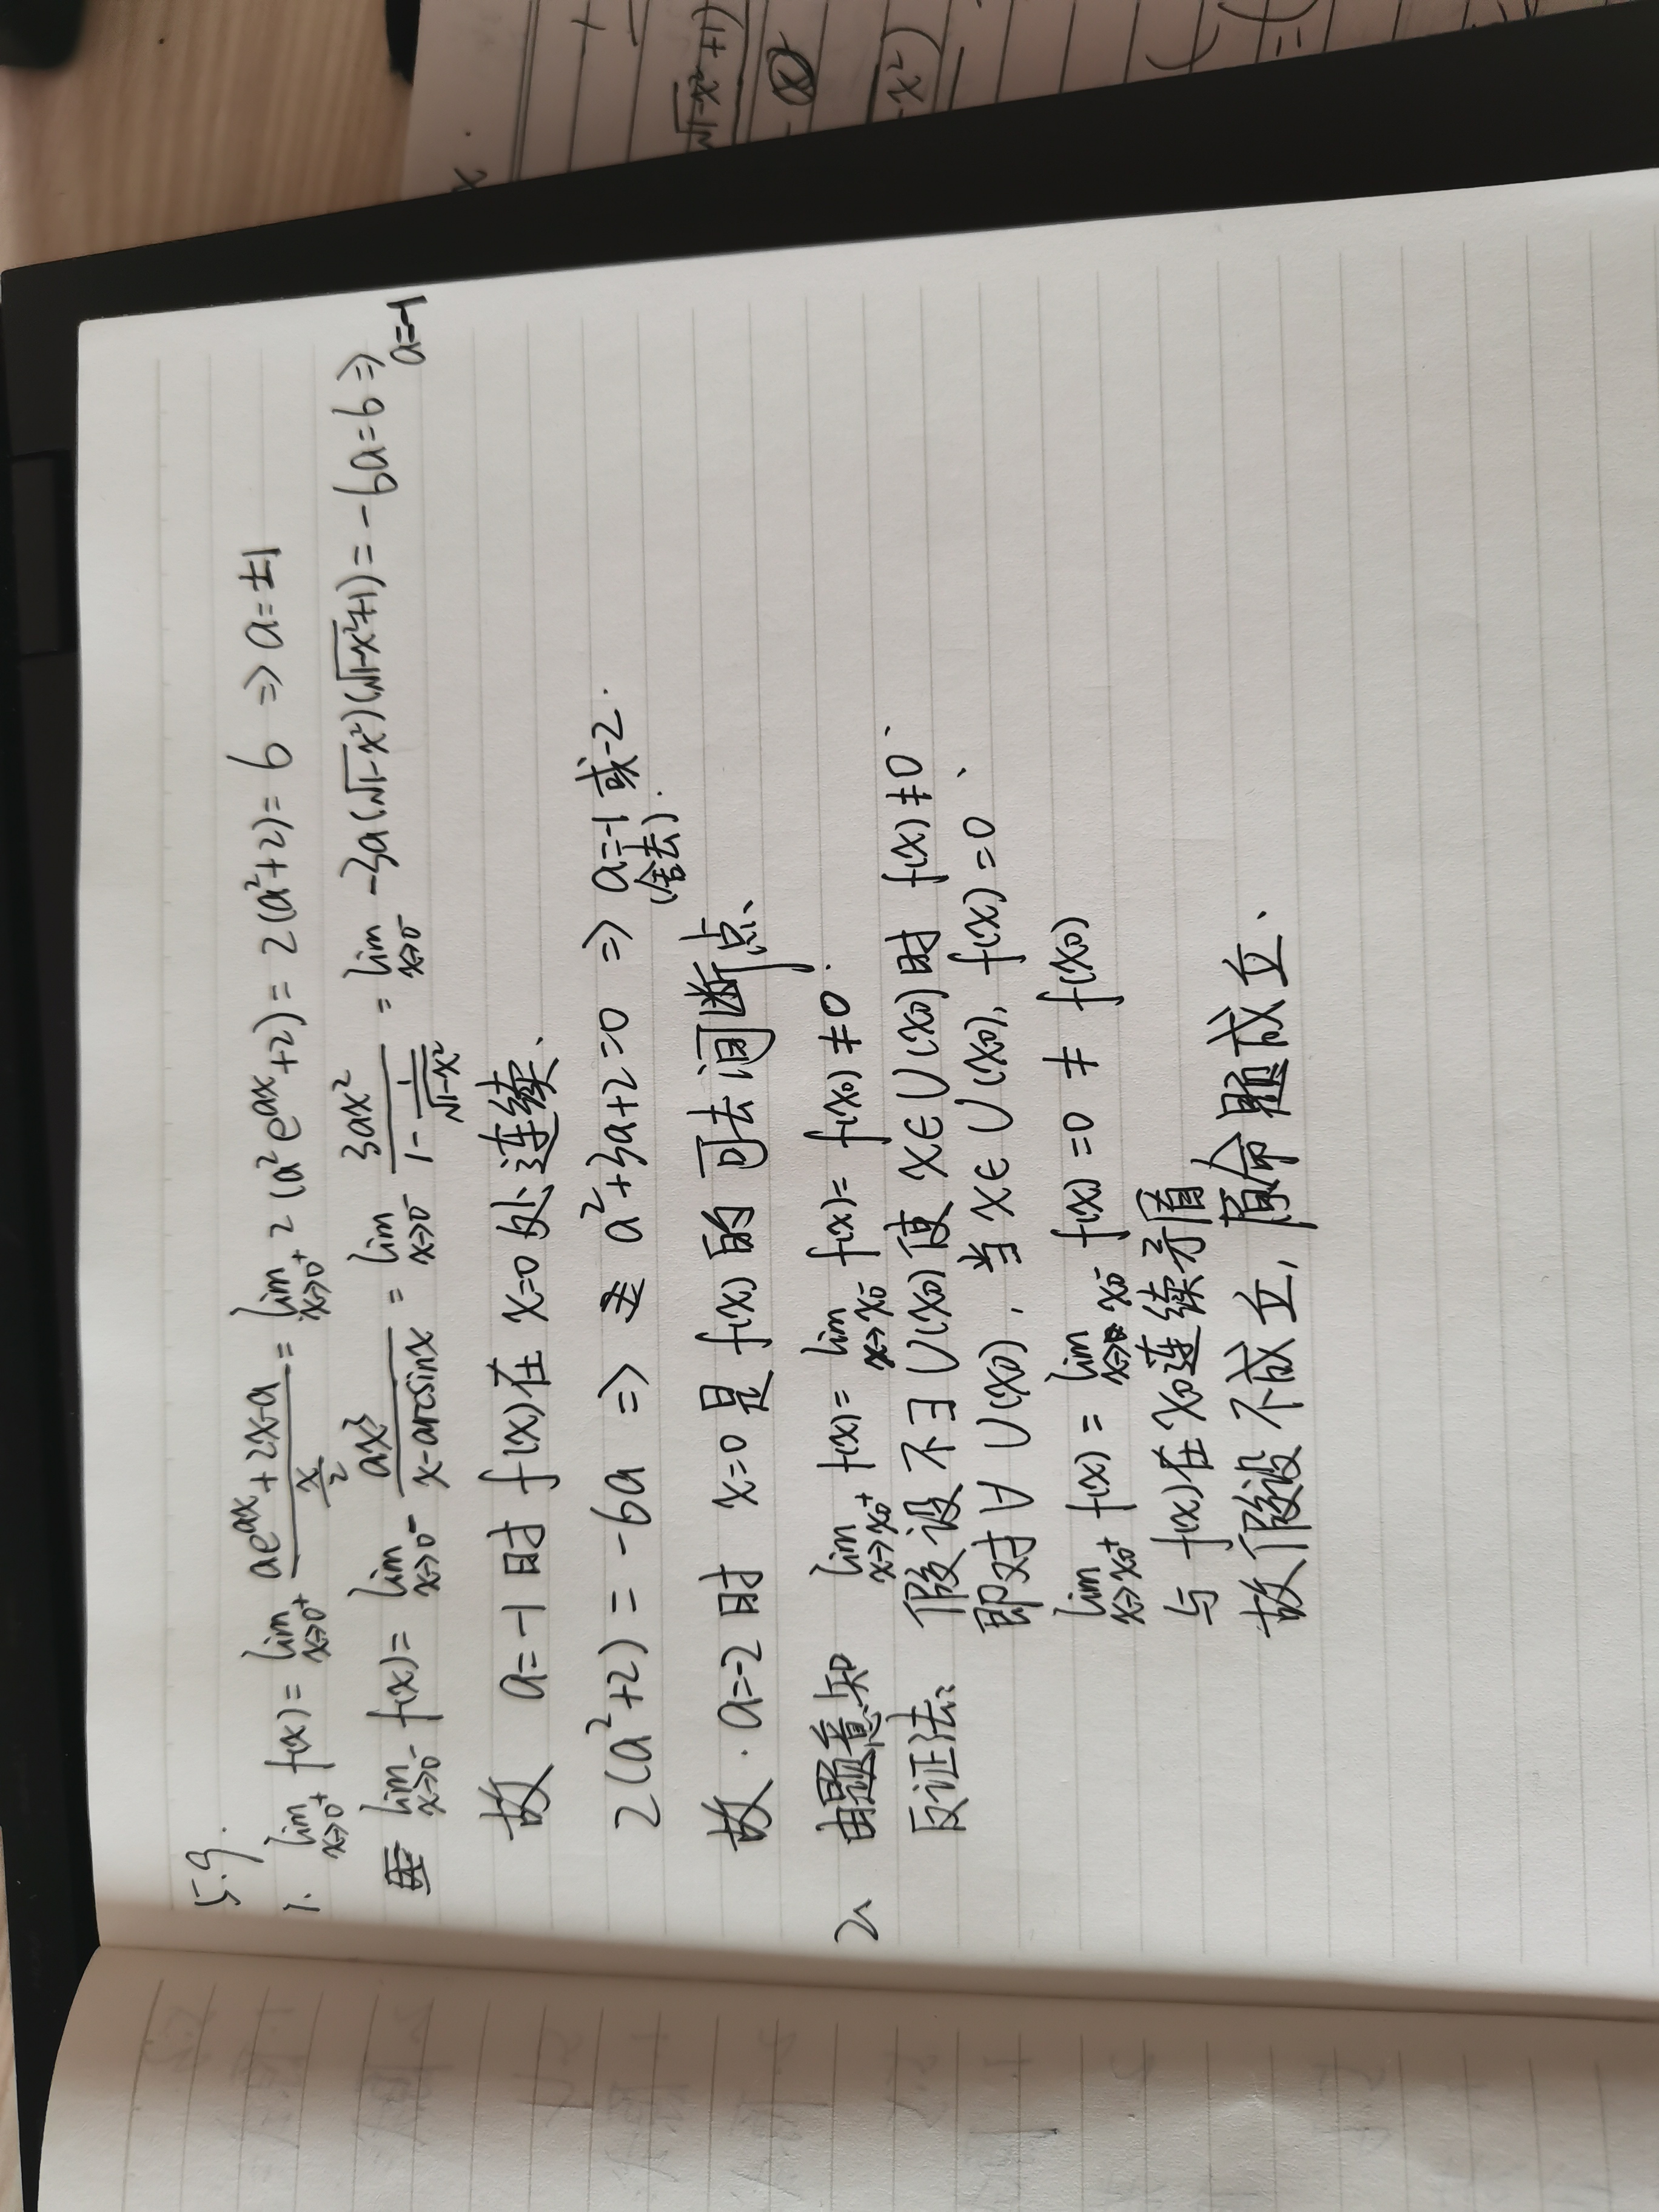 5.9.
1. lim_{x→0⁺} f(x) = lim_{x→0⁺} (ae^{ax}+2x-a)/(x/2) = lim_{x→0⁺} 2(a²e^{ax}+2) = 2(a²+2) = 6 ⇒ a=±1
lim_{x→0⁻} f(x) = lim_{x→0⁻} ax³/(x-arcsinx) = lim_{x→0⁻} 3ax²/(1-1/√(1-x²)) = lim_{x→0⁻} -3a(√(1-x²))(√(1-x²)+1) = -6a=6 ⇒ a=-1
故 a=-1 时 f(x) 在 x=0 处连续.
2(a²+2) = -6a ⇒ a²+3a+2=0 ⇒ a=-1 或 -2.
(舍去).
故. a=-2 时 x=0 是 f(x) 的 可去间断点.
2. 由题意知 lim_{x→x₀⁺} f(x) = lim_{x→x₀⁻} f(x) = f(x₀) ≠ 0.
反证法: 假设不∃ U(x₀) 使 x∈U(x₀) 时 f(x)≠0.
即对 ∀ U(x₀), 当 x∈U(x₀), f(x)=0.
lim_{x→x₀⁺} f(x) = lim_{x→x₀⁻} f(x) = 0 ≠ f(x₀)
与 f(x) 在 x₀ 连续矛盾,
故假设不成立, 原命题成立.
x.
√(1-x²)+1)
-x²)